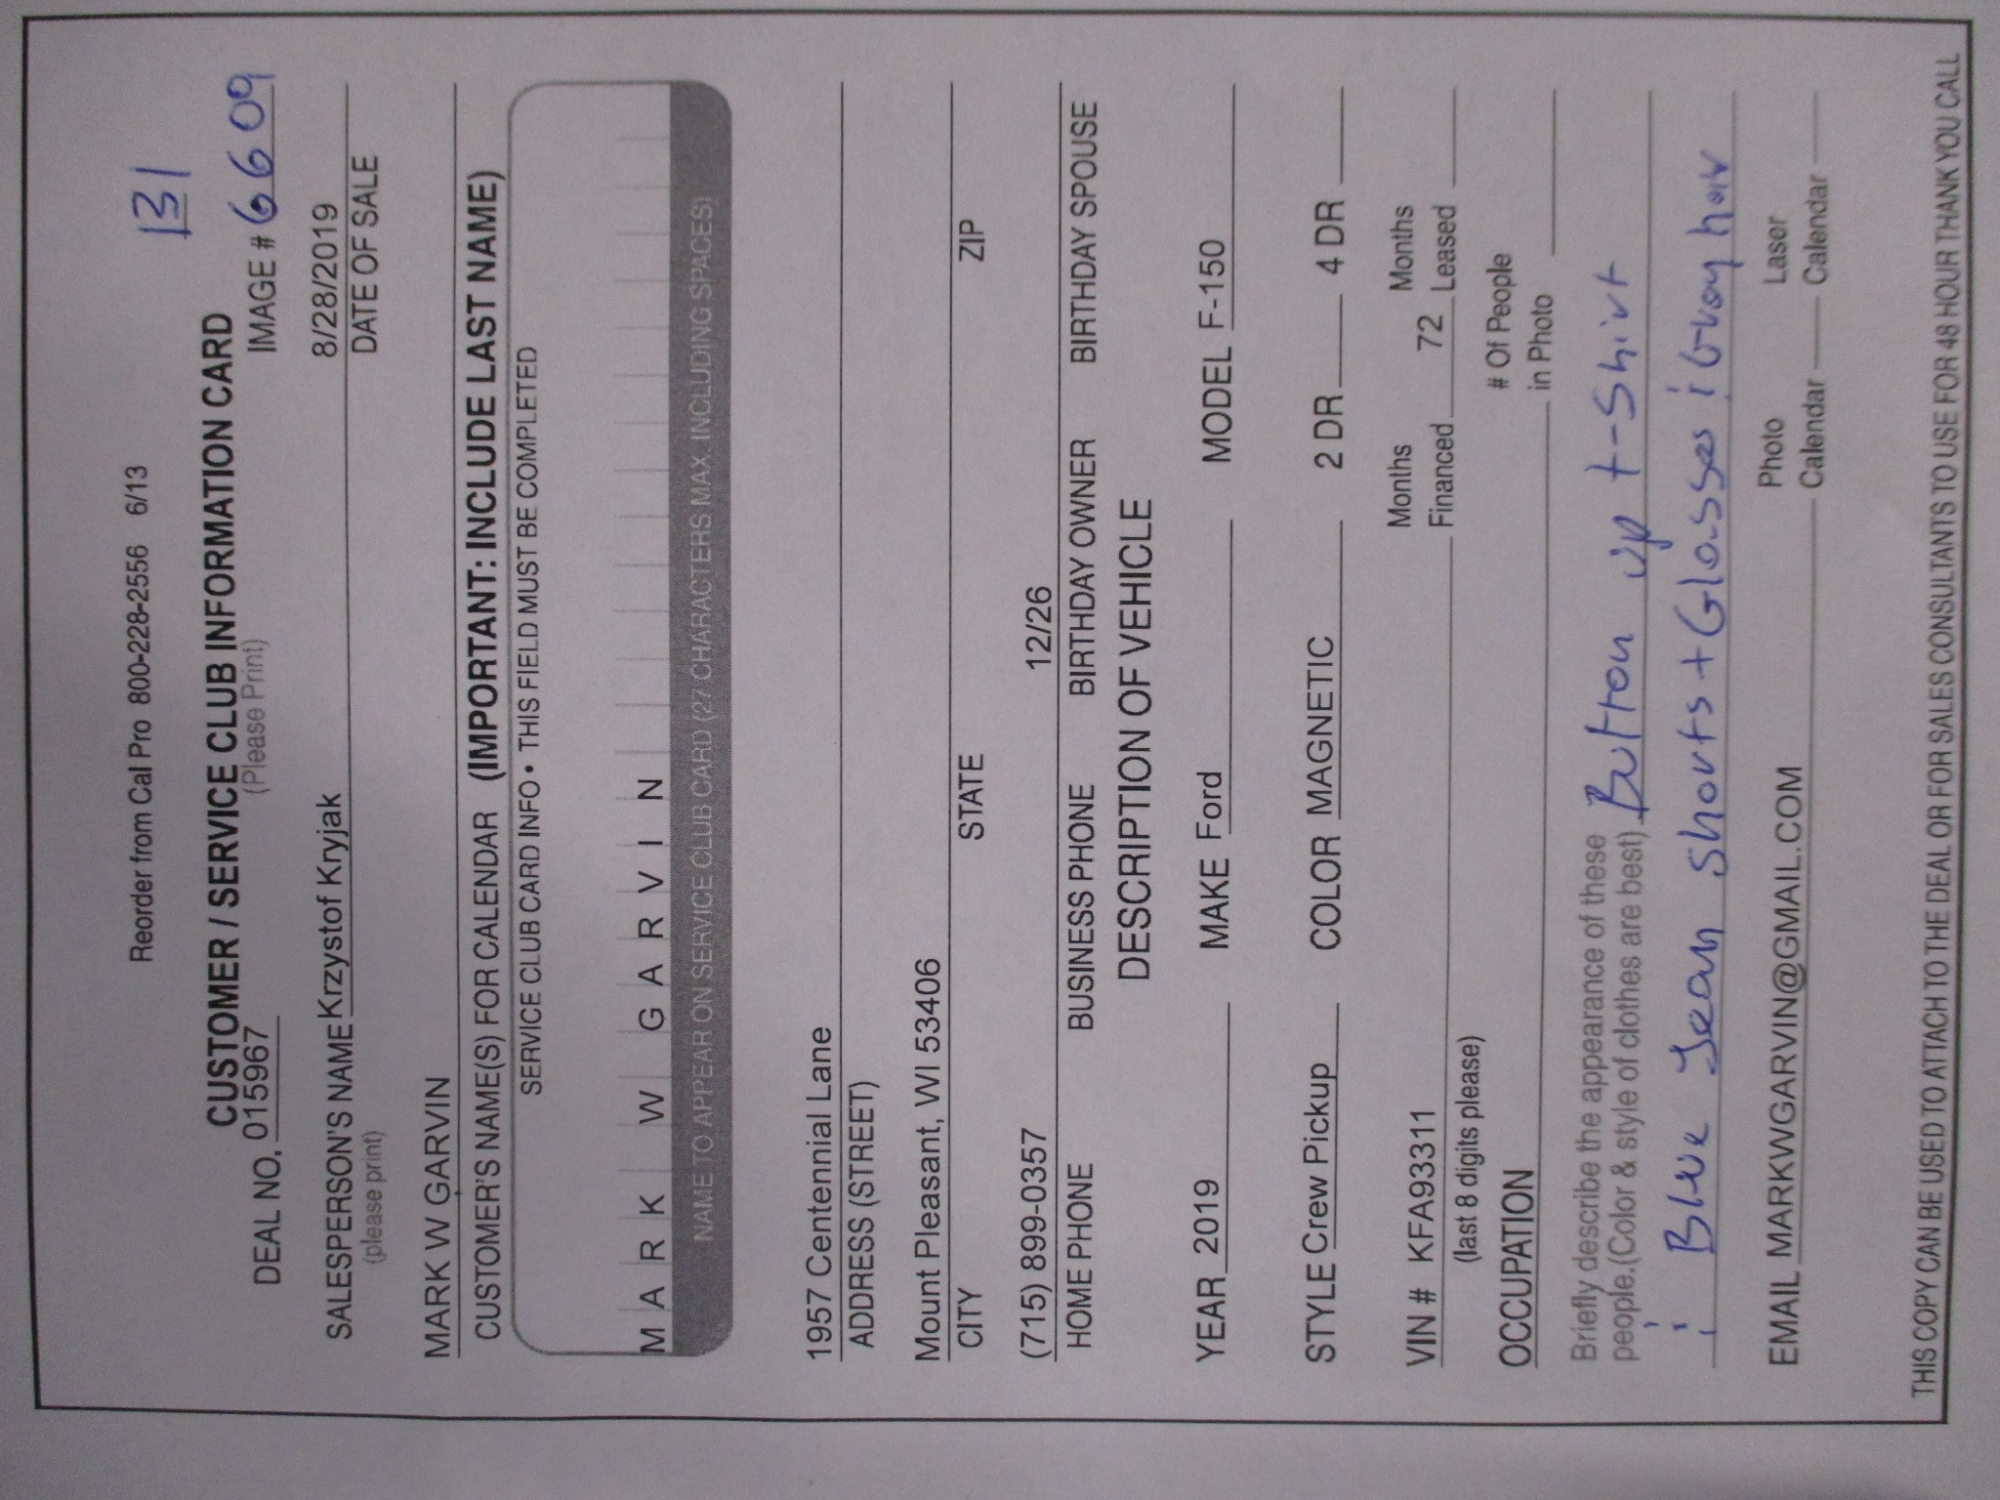 131
Reorder from Cal Pro 800-228-2556 6/13
CUSTOMER / SERVICE CLUB INFORMATION CARD
(Please Print)
DEAL NO. 015967 IMAGE # 6609
SALESPERSON'S NAME Krzystof Kryjak 8/28/2019
(please print) DATE OF SALE
MARK W GARVIN
CUSTOMER'S NAME(S) FOR CALENDAR (IMPORTANT: INCLUDE LAST NAME)
SERVICE CLUB CARD INFO • THIS FIELD MUST BE COMPLETED
MARK W GARVIN
NAME TO APPEAR ON SERVICE CLUB CARD (27 CHARACTERS MAX. INCLUDING SPACES)
1957 Centennial Lane
ADDRESS (STREET)
Mount Pleasant, WI 53406
CITY STATE ZIP
(715) 899-0357 12/26
HOME PHONE BUSINESS PHONE BIRTHDAY OWNER BIRTHDAY SPOUSE
DESCRIPTION OF VEHICLE
YEAR 2019 MAKE Ford MODEL F-150
STYLE Crew Pickup COLOR MAGNETIC 2 DR 4 DR
VIN # KFA93311 Months Financed 72 Months Leased
(last 8 digits please)
OCCUPATION # Of People in Photo
Briefly describe the appearance of these
people.(Color & style of clothes are best) Button up t-shirt
; Blue Jean shorts + Glasses ; Gray hair
EMAIL MARKWGARVIN@GMAIL.COM Photo Calendar Laser Calendar
THIS COPY CAN BE USED TO ATTACH TO THE DEAL OR FOR SALES CONSULTANTS TO USE FOR 48 HOUR THANK YOU CALL